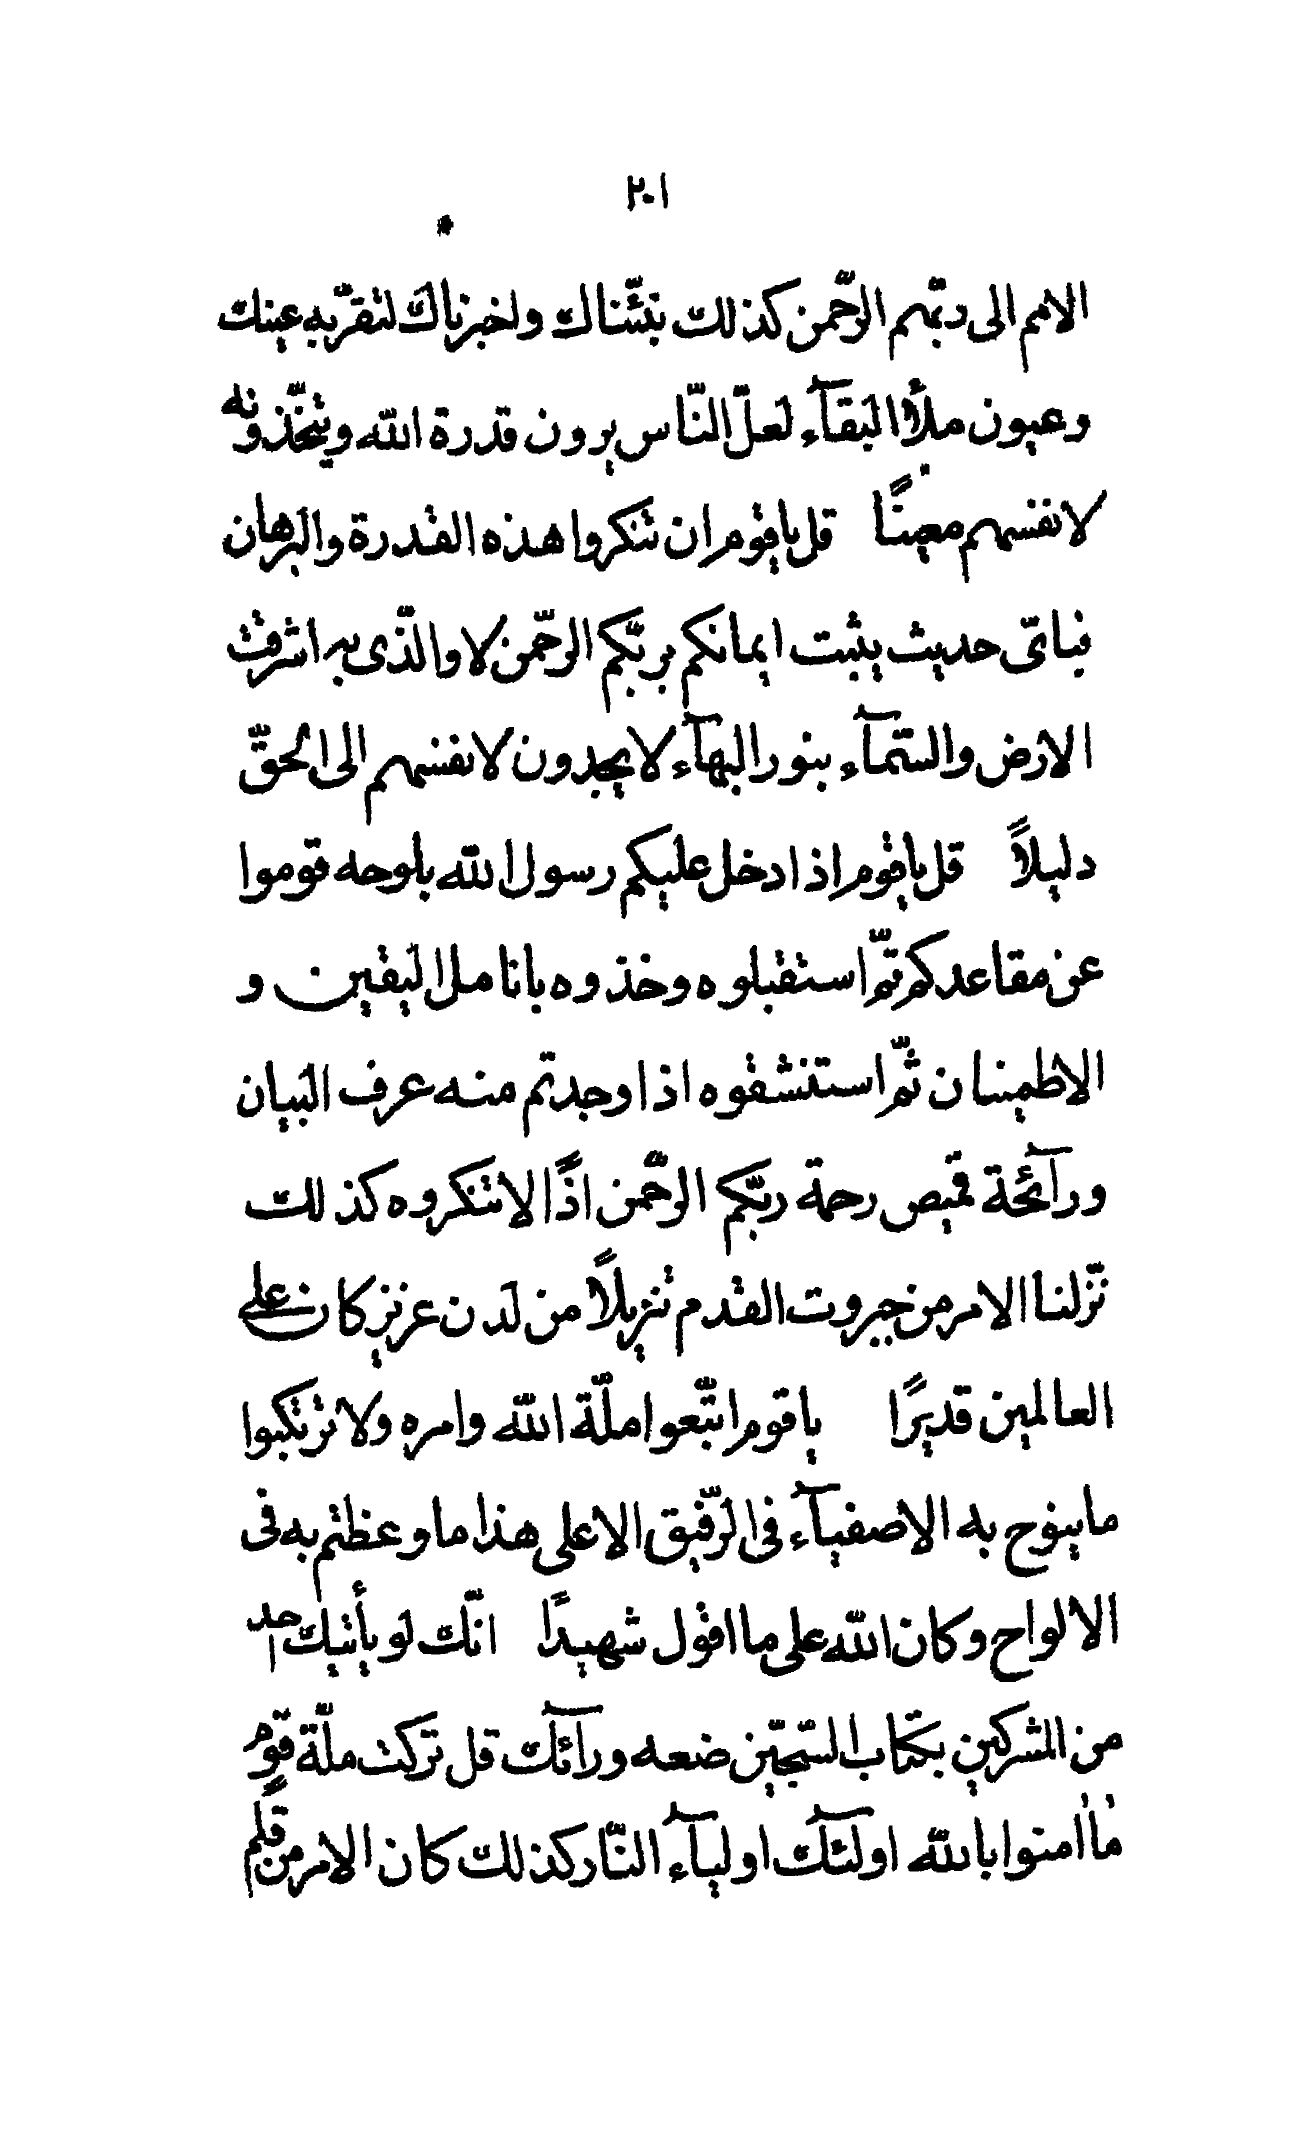 ٢٠١
الامم الى ربّهم الرّحمن كذلك نبّئناك واخبرناك لتقرّ به عينك
وعيون ملأ البقآء لعلّ النّاس يرون قدرة الله ويتّخذونه
لانفسهم معينًا قل ياقوم ان تنكروا هذه القدرة والبرهان
فباىّ حديث يثبت ايمانكم بربّكم الرحّمن لا والّذى به اشرقت
الارض والسّمآء بنور البهآء لا يجدون لانفسهم الى الحقّ
دليلاً قل ياقوم اذا دخل عليكم رسول الله بلوحه قوموا
عن مقاعدكم ثمّ استقبلوه وخذوه بانامل اليقين و
الاطمينان ثمّ استنشقوه اذا وجدتم منه عرف البيان
ورآئحة قميص رحمة ربّكم الرحّمن اذًا لا تنكروه كذلك
نزّلنا الامر من جبروت القدم تنزيلاً من لدن عزيز كان على
العالمين قديرًا ياقوم اتّبعوا ملّة الله وامره ولا ترتكبوا
ما ينوح به الاصفيآء فى الرّفيق الاعلى هذا ما وعظتم به فى
الالواح وكان الله على ما اقول شهيدًا انّك لو يأتيك احد
من المشركين بكتاب السّجّين ضعه ورآئك قل تركت ملّة قوم
ما امنوا بالله اولئك اوليآء النّار كذلك كان الامر من قلم